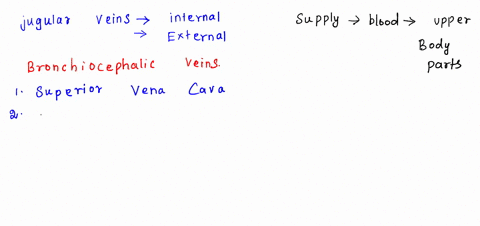 jugular veins → internal
→ External
Supply → blood → upper
Body
parts
Bronchiocephalic Veins.
1. Superior Vena Cava
2.